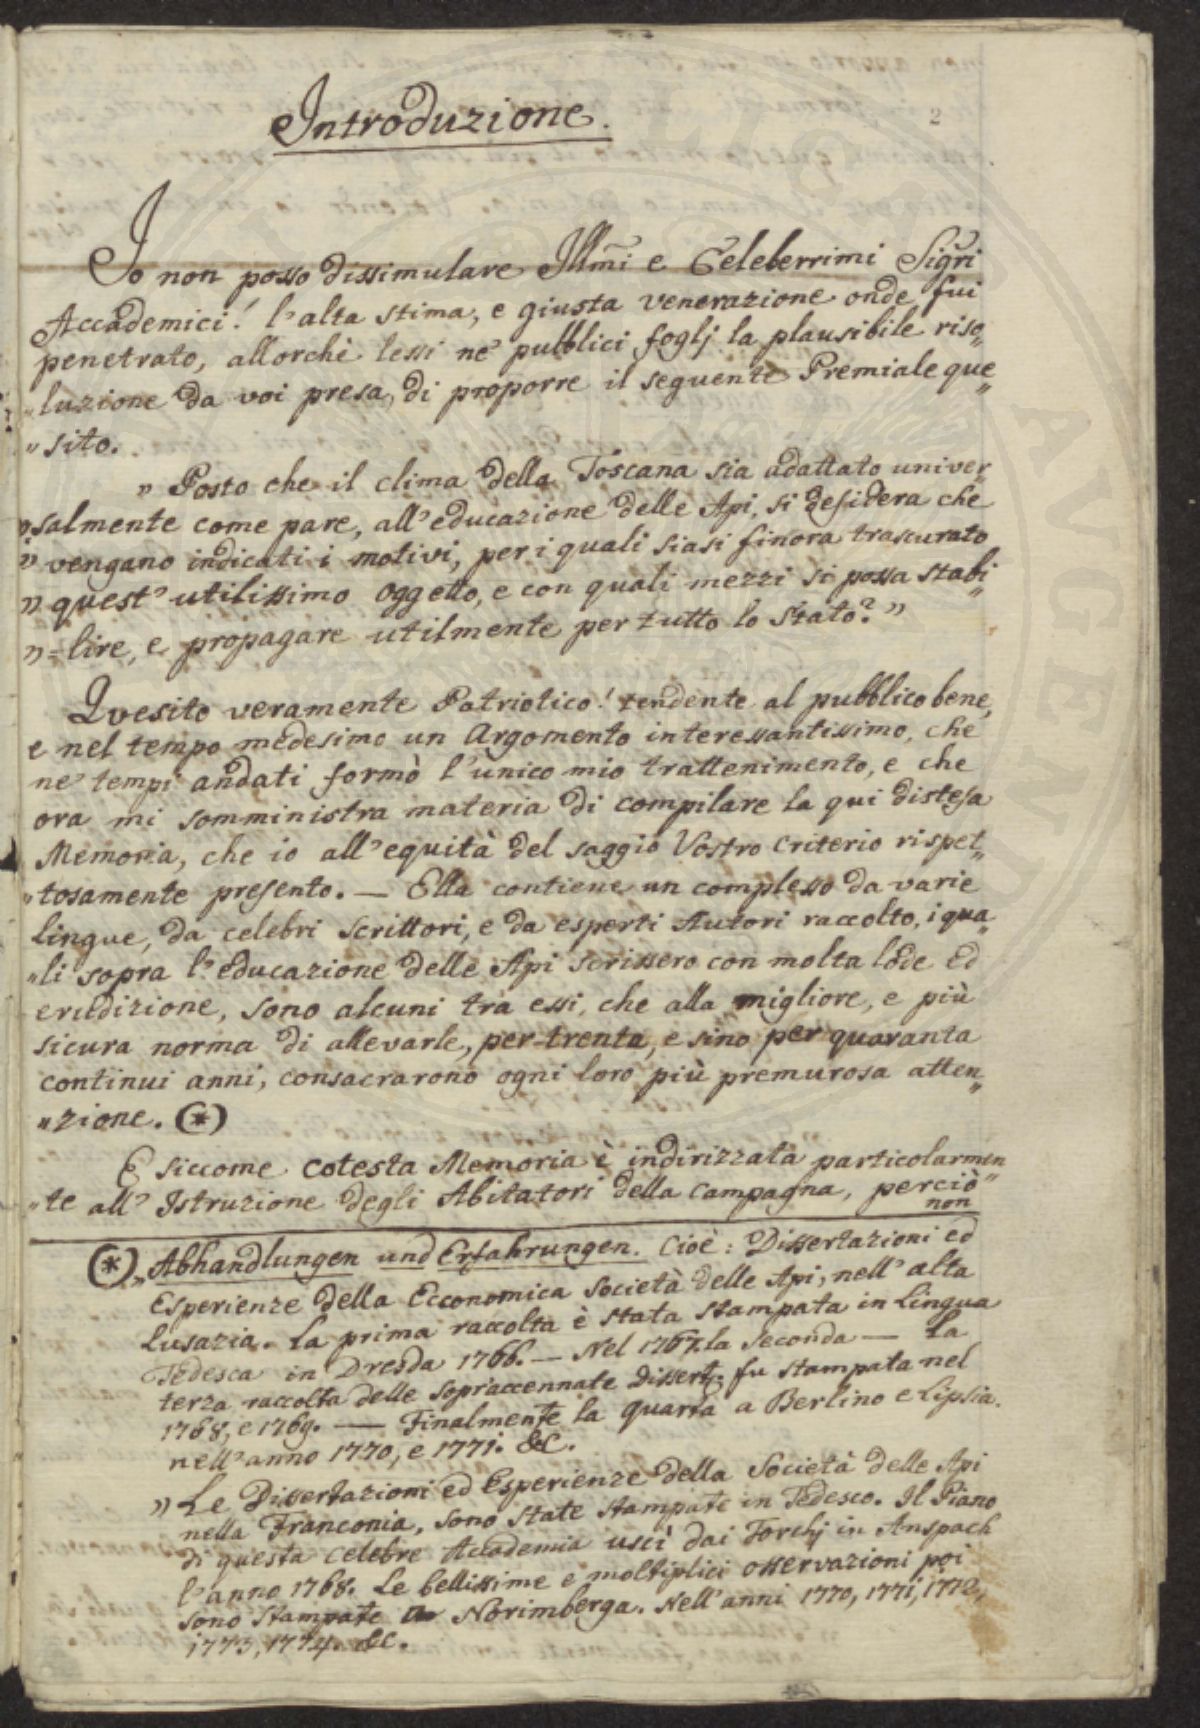 2
Introduzione.
Io non posso dissimulare Illmi e Celeberrimi Sigri
Accademici! l'alta stima, e giusta venerazione onde fui
penetrato, allorchè lessi ne' pubblici foglj la plausibile riso„
„luzione da voi presa, di proporre il seguente Premiale que„
„sito.
„ Posto che il clima della Toscana sia adattato univer„
„salmente come pare, all'educazione delle Api, si desidera che
„ vengano indicati i motivi, per i quali siasi finora trascurato
„ quest' utilissimo oggetto, e con quali mezzi si possa stabi„
„=lire, e propagare utilmente per tutto lo Stato? „
Quesito veramente Patriotico! tendente al pubblico bene,
e nel tempo medesimo un Argomento interessantissimo, che
ne' tempi andati formò l'unico mio trattenimento, e che
ora mi somministra materia di compilare la qui distesa
Memoria, che io all'equità del saggio Vostro Criterio rispet„
„tosamente presento. — Ella contiene un complesso da varie
lingue, da celebri scrittori, e da esperti Autori raccolto, i qua„
„li sopra l'educazione delle Api scrissero con molta lode ed
erudizione, sono alcuni tra essi, che alla migliore, e più
sicura norma di allevarle, per trenta, e sino per quaranta
continui anni, consacrarono ogni loro più premurosa atten„
„zione. (*)
E siccome cotesta Memoria è indirizzata particolarmen„
„te all' Istruzione degli Abitatori della Campagna, perciò
non
(*) „Abhandlungen und Erfahrungen. Cioè: Dissertazioni ed
Esperienze della Economica Società delle Api, nell' alta
Lusazia. La prima raccolta è stata stampata in Lingua
Tedesca in Dresda 1766. — Nel 1767. la seconda — La
terza raccolta delle sopraccennate Dissert. fu stampata nel
1768, e 1769. — Finalmente la quarta a Berlino e Lipsia.
nell'anno 1770, e 1771. &c.
„ Le Dissertazioni ed Esperienze della Società delle Api
nella Franconia, sono state stampate in Tedesco. Il Piano
di questa celebre Accademia uscì dai Torchj in Anspach
l'anno 1768. Le bellissime e moltiplici osservazioni poi
sono stampate Norimberga. Nell'anni 1770, 1771, 1772,
1773, 1774. &c.